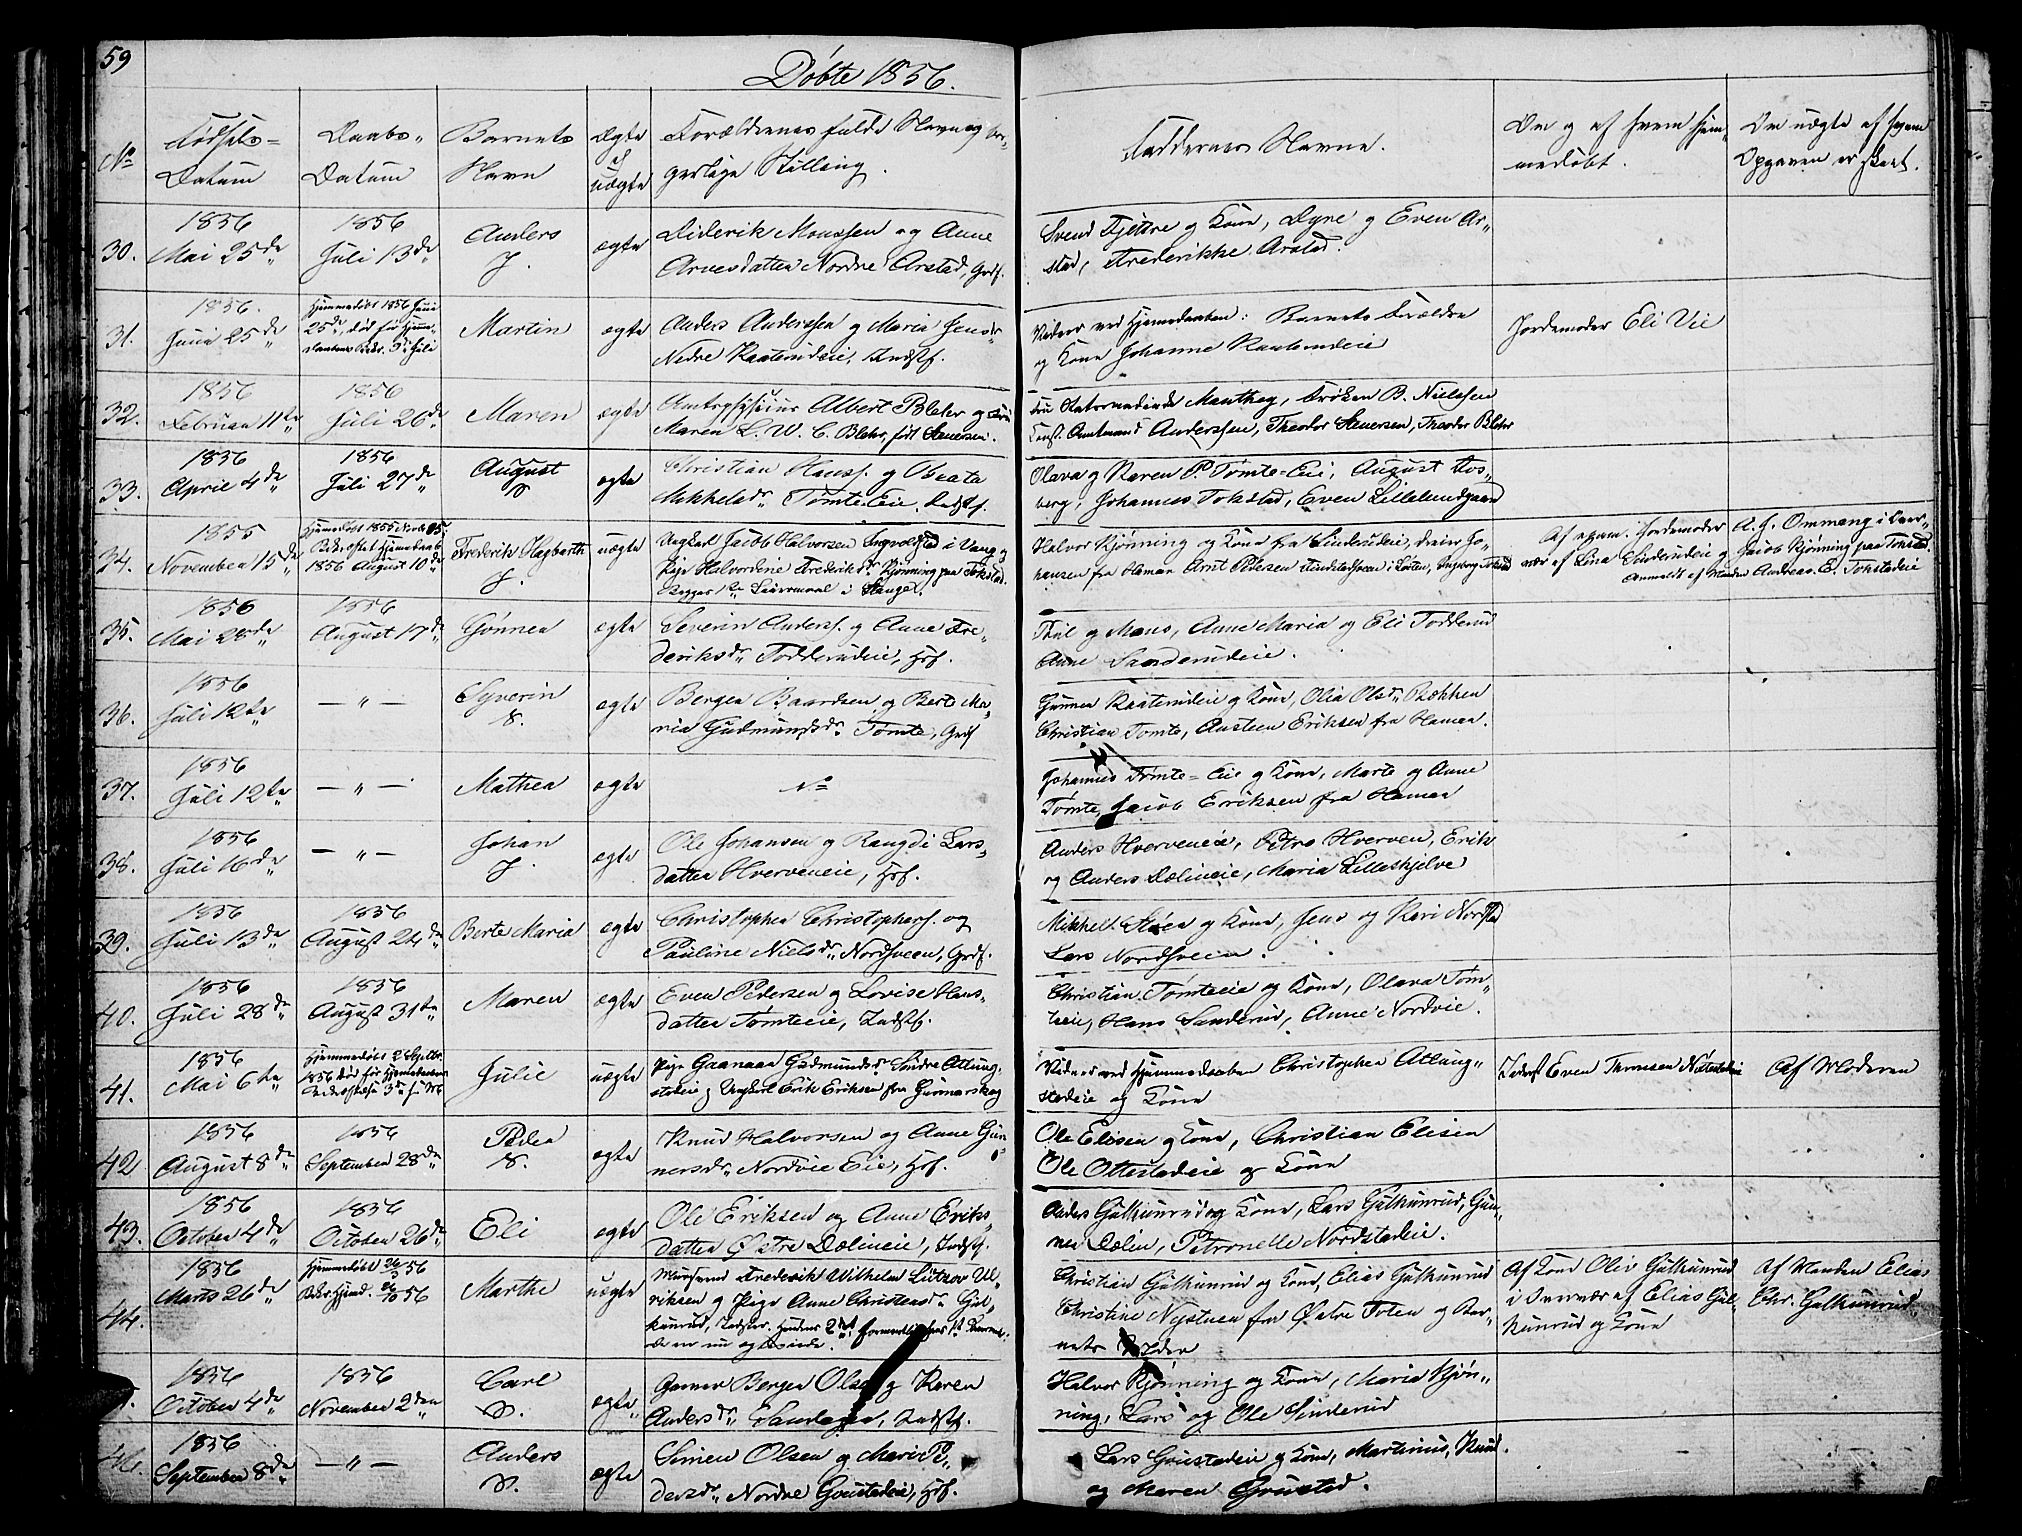 59
Døbte 1856.
No
Fødsels-
Datum
Daabs-
Datum
Barnets
Navn
Ægte
el
uægte
Forældrenes fulde Navne og bor-
gerlige Stilling.
Faddernes Navne.
Om og af hvem hjem-
medøbt.
Om uægte af hvem
Opgaven er skeet.
30.
1856
Mai 25de
1856
Juli 13de
Anders
J.
ægte
Diderik Monssen og Anne
Arnesdatter Nordre Arstad, Grdf.
Svend Fjettre og Kone, Dyne og Even Ar-
stad, Frederikke Arstad.
31.
1856.
Juni 25de
Hjemmedøbt 1856 Juni
25de, død før Hjemme-
daabens Bekr. 3de Juli
Martin
ægte
Anders Anderssen og Maria Jensdr
Nedre Kaaterudeie, Indstf.
Vidner ved Hjemmedaaben: Barnets Forældre
og Kone Johanne Kaaterudeie
Jordemoder Eli Vie
32.
1856
Februar 11te
1856
Juli 26de
Maren
ægte
Amtsphysicus Albert Blehr og Fru
Maren L. W. C. Blehr, født Stuersen.
Fru Manthey, Frøken B. Nielsen
Const. Amtmand Anderssen, Theodor Stuersen, Theodor Blehr
33.
1856
April 4de
1856
Juli 27de
August
ægte
Christian Hanss. og Beata
Mikkelsdr Tømte-Eie, Indstf.
Olava og Karen P. Tømte-Eie, August Fos-
berg, Johannes Tokstad, Even Lillelundgaard
34.
1855
November 15de
Hjemmedøbt 1855 Novbr 25.
Bekræftet Hjemmedaab
1856 August 10de
Frederik Hagbarth
J.
uægte
Ungkarl Jacob Halvorsen Ingvoldstad i Vang og
Pige Halvordine Frederiksdr Kjønning paa Tokstad.
Begges 1ste Leiermaal i Stange.
Halvor Kjønning og Kone fra Sinderudeie, Jo-
hansen fra Hamar Arnt Pedersen i Løiten, Ingeborg Tokstad
Af Jordemoder
nær af Lina Sinderudeie og
Anmeldt af Manden Andreas E. Tokstadeie
A. J. Ommang i
Jacob Kjønning paa Tokstad.
35.
1856
Mai 28de
1856
August 17de
Gønner
ægte
Severin Anderss. og Anne Fre-
deriksdr Todderudeie, Hsf.
og Mons, Anne Maria og Eli Todderud
Anne Sanderudeie.
36.
1856
Juli 12te
— " —
Syverin
S.
ægte
Berger Baardsen og Berte Ma-
ria Gudmundsdr Tømte, Grdf
Gunner Kaaterudeie og Kone, Olia Olsdr Bækken
Christian Tømte, Austeen Eriksen fra Hamar.
37.
1856
Juli 12te
— " —
Mathea
ægte
— " —
Johannes Tømte-Eie og Kone, Marte og Anne
Tømte, Jacob Eriksen fra Hamar
38.
1856
Juli 16de
— " —
Johan
J.
ægte
Ole Johansen og Rangdi Lars-
datter Hverveneie, Hsf.
Anders Hverveneie, Petro Hverven, Erik
og Anders Dælineie, Maria Lilleskjelve
39.
1856
Juli 13de
1856
August 24de
Berte Maria
ægte
Christopher Christophers. og
Pauline Nielsdr Nordsveen, Grdf.
Mikkel Støen og Kone, Jens og Kari Nordstad
Lars Nordsveen.
40.
1856
Juli 28de
1856
August 31te
Maren
ægte
Even Pedersen og Lovise Hans-
datter Tømteeie, Indstf.
Christian Tømteeie og Kone, Olava Tøm-
teeie, Hans Sanderud, Anne Nordvie.
41.
1856
Mai 6te
Hjemmedøbt 2 Septbr.
1856 død før Hjemmedaabens
Juli
Julie
uægte
Pige Gaanaar Gudmundsdr Søndre Atlung-
stadeie og Ungkarl Erik Eriksen fra Gunnarskog
Vidner ved Hjemmedaaben Christopher Atlung-
stadeie og Kone
Inderst Even Thomsen Nøttestadeie
Af Moderen
42.
1856
August 8de
1856
September 28de
Peder
S.
ægte
Knud Halvorsen og Anne Gun-
nersdr Nordvie Eie, Hsf.
Ole Elisen og Kone, Christian Elisen
Ole Ottestadeie og Kone
43.
1856
October 4de
1856
October 26de
Eli
ægte
Ole Eriksen og Anne Eriks-
datter Østre Dælineie, Indstf.
Anders Gulhunrud og Kone, Lars Gulhunrud, Gun-
ner Dælin, Petronelle Nordstadeie.
44.
1856
Marts 26de
Hjemmedøbt 26/3 56
Bekr. Hjmd. 26/10 56
Marthe
uægte
Frederik Wilhelm Lützov Ul-
riksen og Pige Anne Christensdr Gul-
hunrud, Indster.
Christian Gulhunrud og Kone, Elias Gulhunrud
Christine Nystuen fra Østre Toten og Bar-
nets
Af Kone Oliv Gulhunrud
i Nærvær af Elias Gul-
hunrud og Kone
Af Manden Elias
Chr. Gulhunrud.
1856
October 4de
1856
November 2den
Carl
ægte
Berger Olsen og Karen
Andersdr Indstf.
Halvor Kjønning og Kone, Maria Kjøn-
ning, Lars og Ole Sinderud
46.
1856
September 8de
— " —
Anders
ægte
Simen Olsen og Marie Pe-
dersdr Nordre Gonstadeie, Hsf.
Lars Gonstadeie og Kone, Martinus, Knud
og Maren Gonstad.